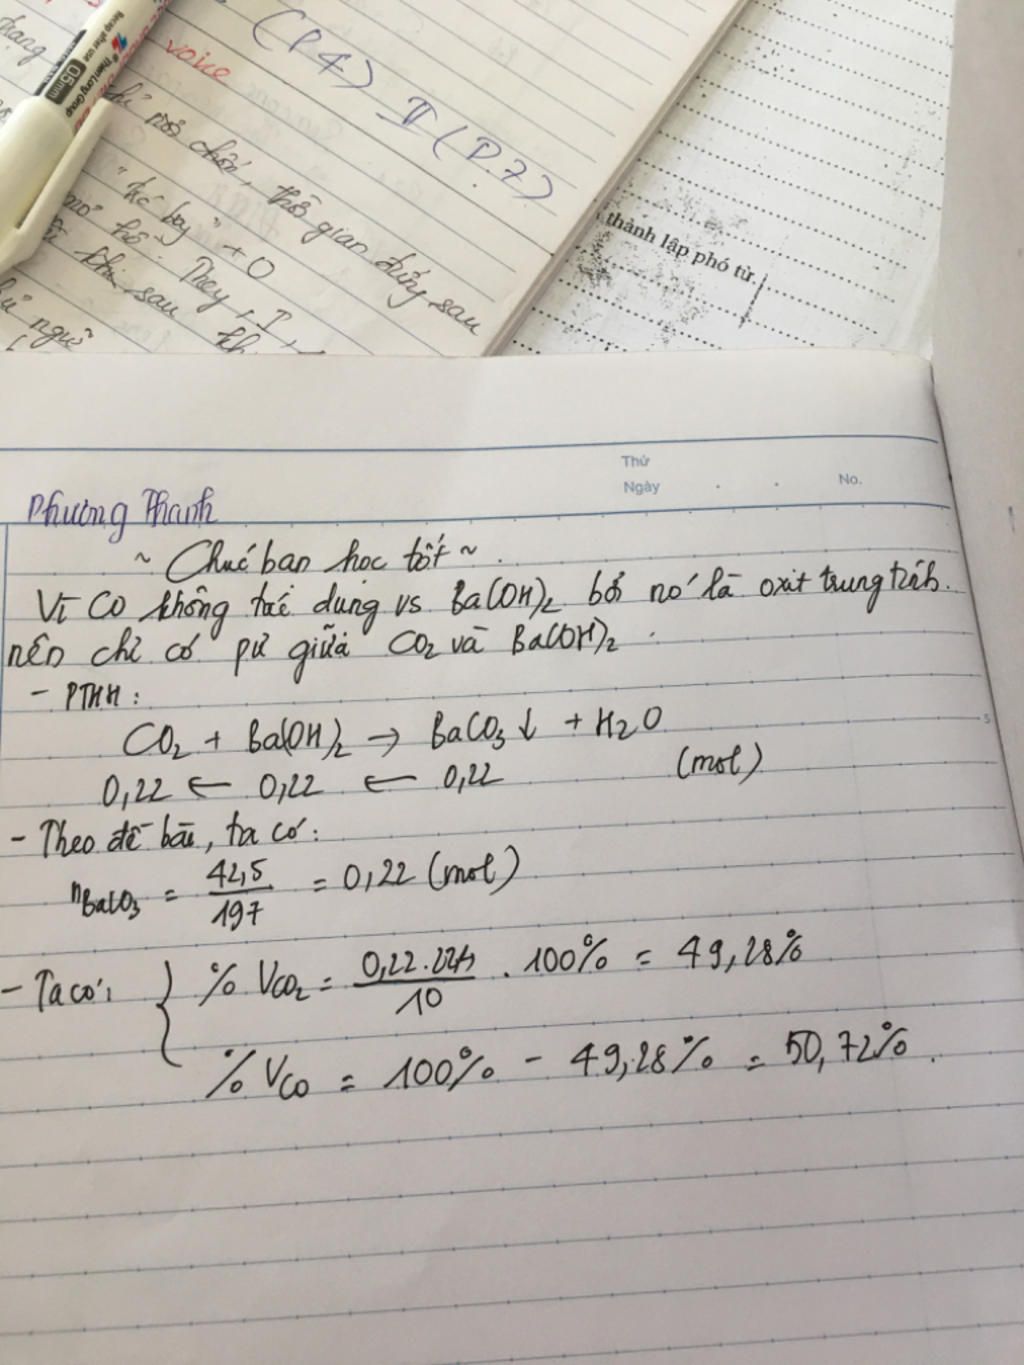 voice
(P.4) II (P.7)
Recap after use
Thien Long Group
0.5mm
nói chối, thời gian đứng sau
"kế bay" + O
They, I,
khi sau
thành lập phó từ
Thứ
Ngày
No.
Phương Thanh
~ Chúc bạn học tốt ~
Vì CO không tác dụng vs Ba(OH)2 bởi nó là oxit trung tính.
nên chỉ có pư giữa CO2 và Ba(OH)2.
- PTHH:
CO2 + Ba(OH)2 → BaCO3↓ + H2O
0,22 ← 0,22 ← 0,22 (mol)
- Theo đề bài, ta có:
nBaCO3 = 42,5/197 = 0,22 (mol)
- Ta có: { % VCO2 = 0,22.22,4/10 . 100% = 49,28%
% VCO = 100% - 49,28% = 50,72%.